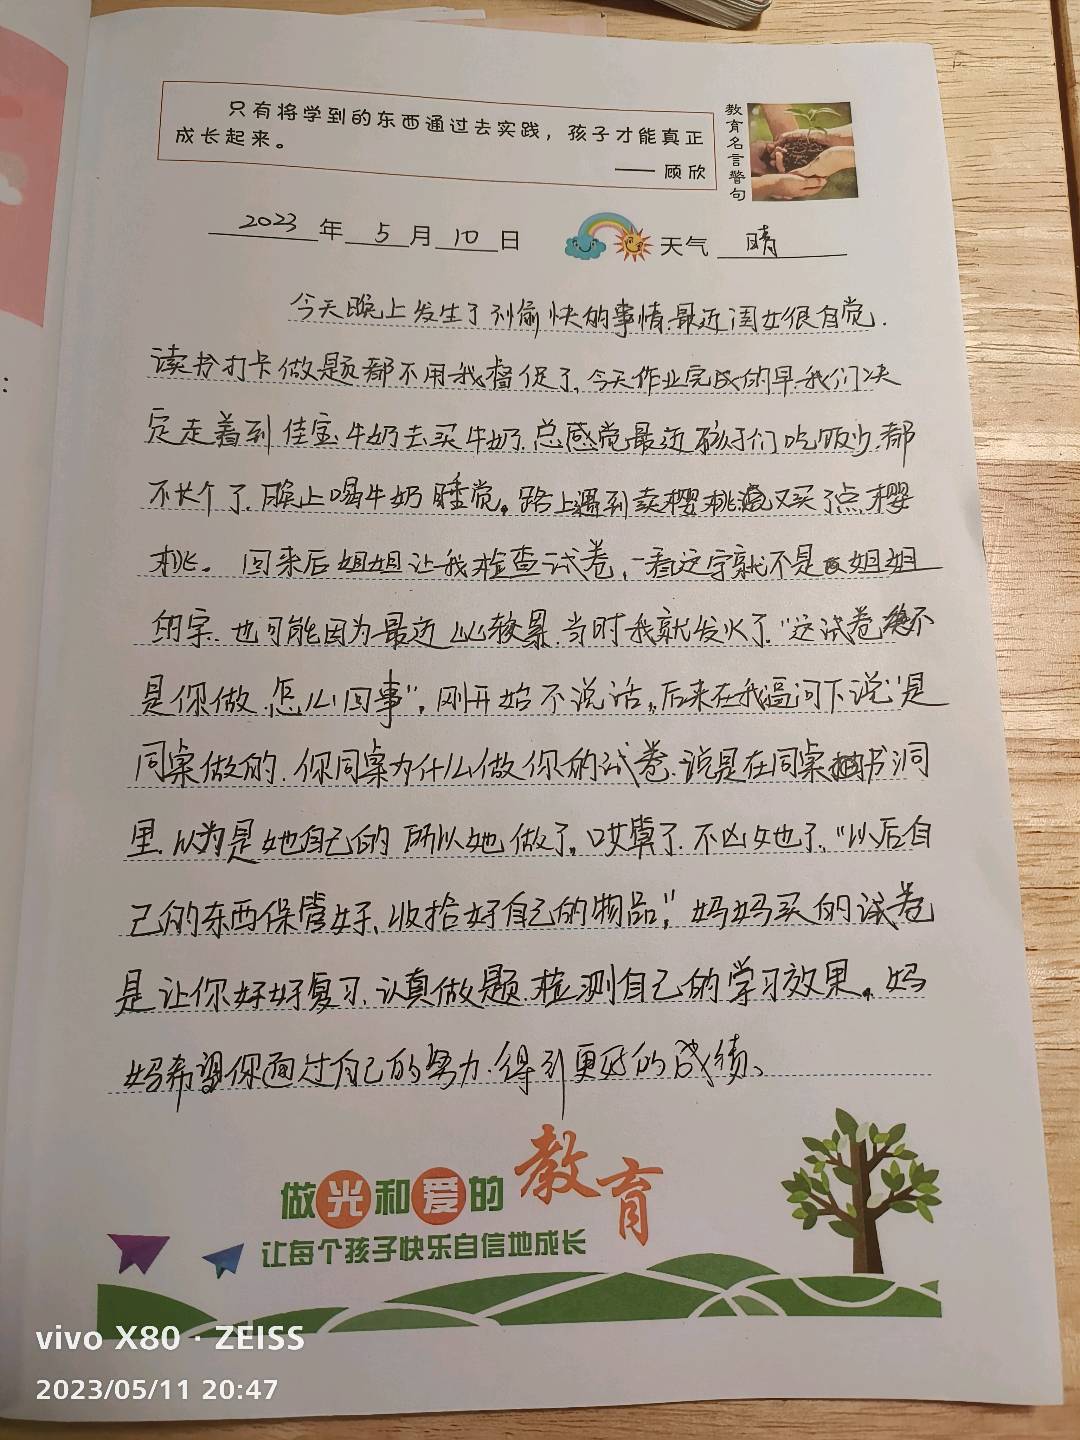 只有将学到的东西通过去实践，孩子才能真正
成长起来。
—— 顾欣
教育名言警句
2023年5月10日 天气 晴
今天晚上发生了愉快的事情.最近闺女很自觉.
读书打卡做题都不用我督促了.今天作业完成的早.我们决
定走着到佳宝牛奶去买牛奶.总感觉最近孩子们吃饭少.都
不长个了.晚上喝牛奶睡觉。路上遇到卖樱桃又买了点樱
桃。回来后姐姐让我检查试卷,一看这字就不是姐姐
的字.也可能因为最近比较累.当时我就发火了."这试卷不
是你做.怎么回事".刚开始不说话.后来在我逼问下说"是
同桌做的.你同桌为什么做你的试卷.说是在同桌书洞
里.以为是她自己的.所以她做了。哎算了.不凶她了."以后自
己的东西保管好、收拾好自己的物品."妈妈买的试卷
是让你好好复习.认真做题.检测自己的学习效果。妈
妈希望你通过自己的努力.得到更好的成绩、
做光和爱的教育
让每个孩子快乐自信地成长
vivo X80 · ZEISS
2023/05/11 20:47